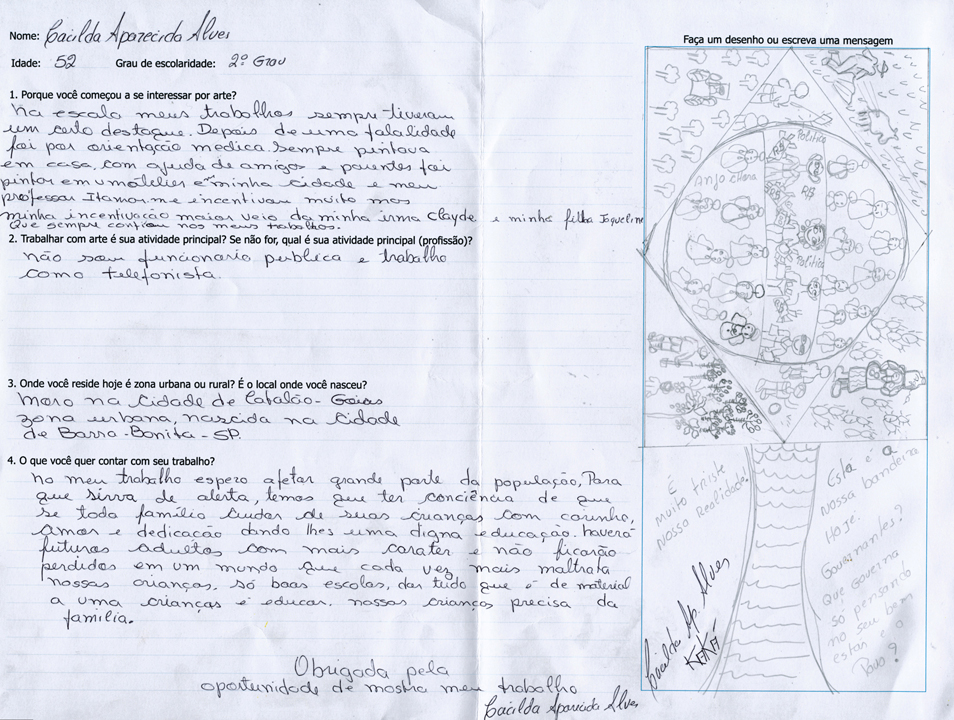 Nome: Cacilda Aparecida Alves
Idade: 52 Grau de escolaridade: 2º Grau
1. Porque você começou a se interessar por arte?
Na escola meus trabalhos sempre tiveram
um certo destaque. Depois de uma fatalidade
foi por orientação medica. Sempre pintava
em casa, com ajuda de amigos e parentes fui
pintor em um atelies e minha cidade e meu
professor Itamar me incentivam muito mas
minha incentivação maior veio da minha irma Clayde e minha filha Jaqueline
Que sempre confiam nos meus trabalhos.
2. Trabalhar com arte é sua atividade principal? Se não for, qual é sua atividade principal (profissão)?
não sou funcionario publica e trabalho
como telefonista.
3. Onde você reside hoje é zona urbana ou rural? É o local onde você nasceu?
Moro na Cidade de Catalão - Goias
zona urbana, nascida na Cidade
de Barra-Bonita - SP.
4. O que você quer contar com seu trabalho?
no meu trabalho espero afetar grande parte da população, Para
que sirva de alerta, temos que ter conciência de que
se toda família cuidar de suas crianças com carinho,
amor e dedicação dando lhes uma digna educação. haverá
futuros adultos com mais carater e não ficarão
perdidos em um mundo que cada vez mais maltrata
nossas crianças, só boas escolas, dar tudo que é de material
a uma crianças é educar. nossas crianços precisa da
família.
Obrigada pela
oportunidade de mostra meu trabalho
Cacilda Aparecida Alves
Faça um desenho ou escreva uma mensagem
Politica
Anjo
R$
Politica
É
muito triste
nossa Realidade.
Cacilda Ap. Alves
KAKÁ
Esta é a
nossa bandeira
Hoje.
Governantes?
Que governa
só pensando
no seu bem
estar e o
Povo?